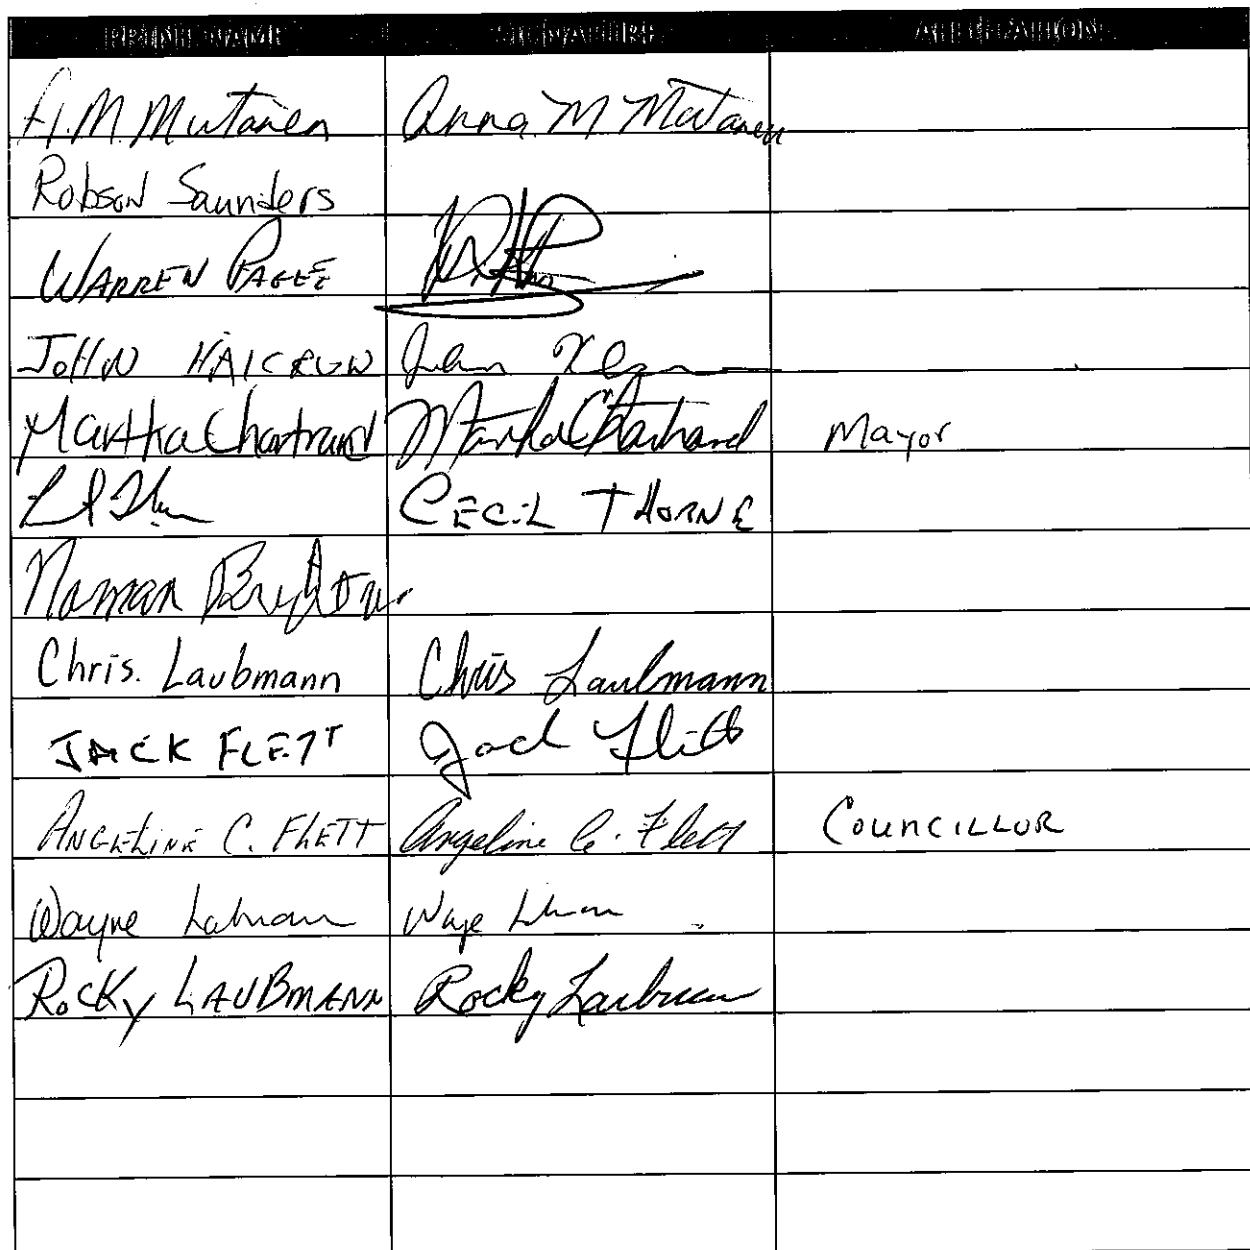 PRINT NAME SIGNATURE AFFILIATION
A.M. Mutanen Anna M Mutanen
Robson Saunders
WARREN PAGEE
JOHN
Martha Chartrand Martha Chartrand Mayor
CECIL THORNE
Norman
Chris. Laubmann Chris Laubmann
JACK FLETT Jack Flett
ANGELINE C. FLETT Angeline C. Flett COUNCILLOR
Wayne Wayne
ROCKY LAUBMANN Rocky Laubmann